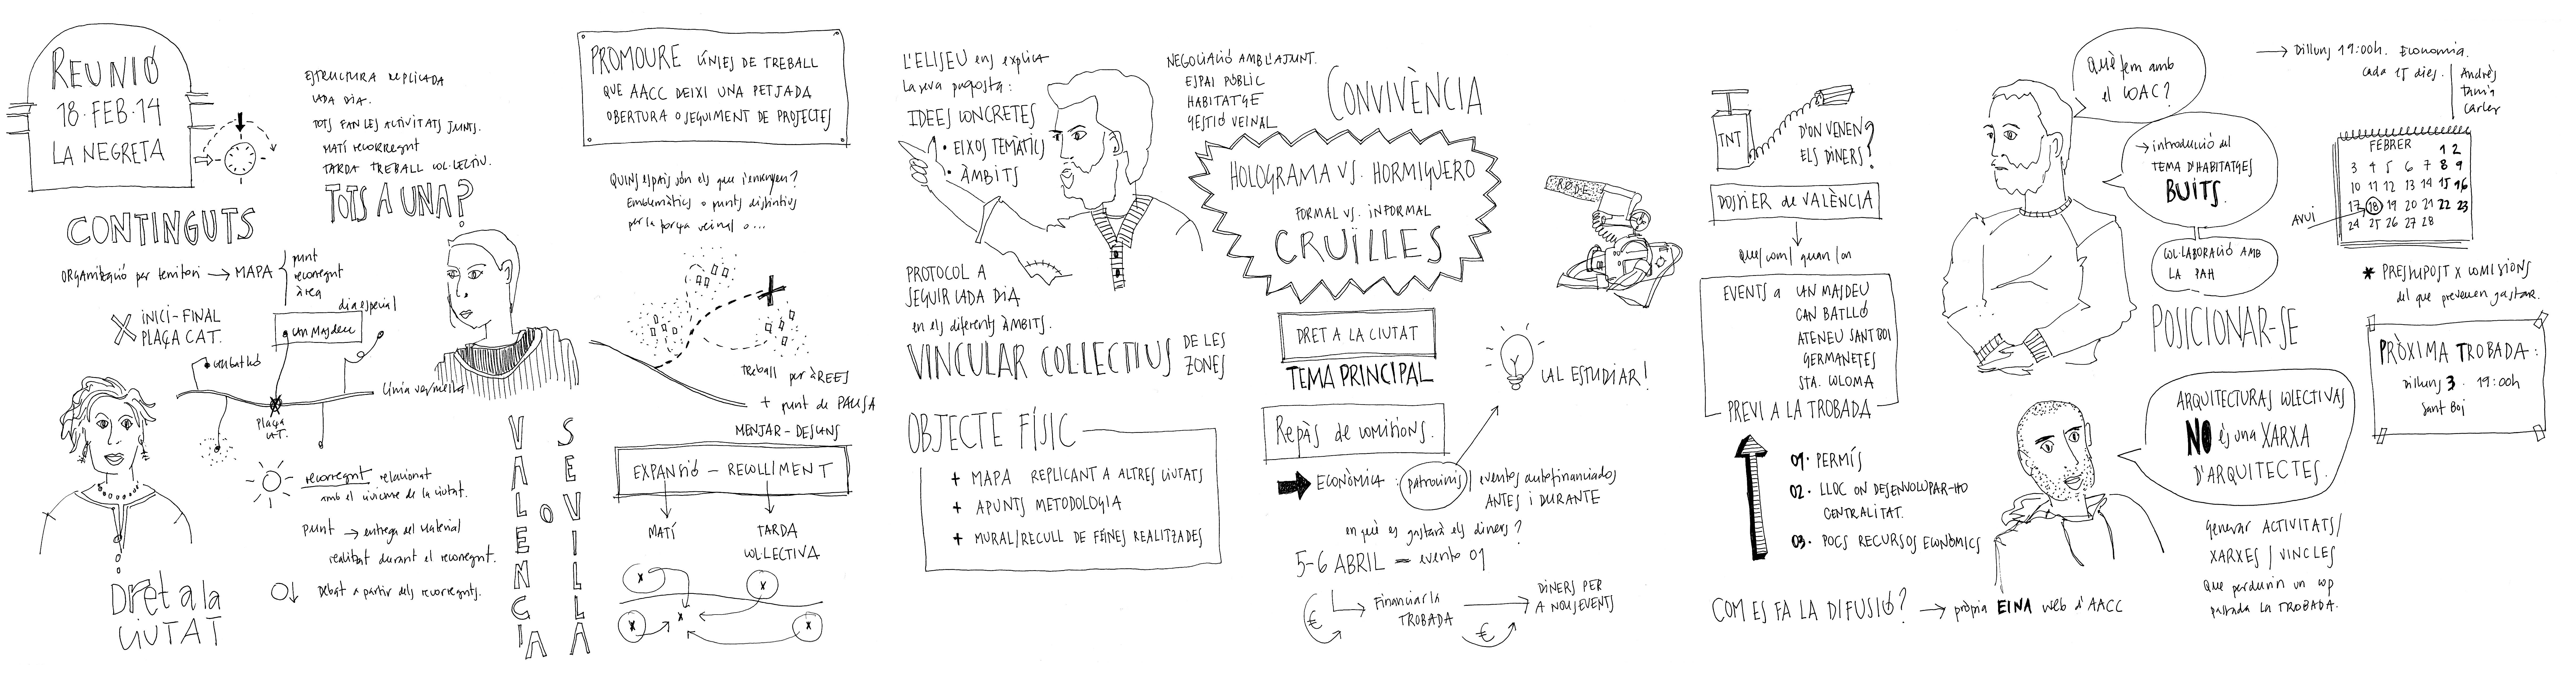 REUNIÓ
18·FEB·14
LA NEGRETA
ESTRUCTURA REPLICADA
CADA DIA.
TOTS FAN LES ACTIVITATS JUNTS.
MATÍ recorregut
TARDA TREBALL COL·LECTIU.
TOTS A UNA?
CONTINGUTS
ORGANITZACIÓ per territori → MAPA
punt
recorregut
àrea
dia especial
INICI-FINAL
PLAÇA CAT.
can Masdeu
can batlló
Línia vermella
Plaça
CAT.
recorregut relacionat
amb el civisme de la ciutat.
punt → entrega del material
realitzat durant el recorregut.
Debat a partir dels recorreguts.
Dret a la
CIUTAT
VALENCIA
O
SEVILLA
PROMOURE LÍNIES DE TREBALL
QUE AACC DEIXI UNA PETJADA
OBERTURA O SEGUIMENT DE PROJECTES
QUINS ESPAIS SÓN ELS QUE S'ensenyen?
Emblemàtics o punts distintius
per la força veïnal o...
Treball per ÀREES
+ punt de PAUSA
MENJAR-DESCANS
EXPANSIÓ - RECOLLIMENT
MATÍ
TARDA
COL·LECTIVA
L'ELISEU ens explica
la seva proposta:
IDEES CONCRETES
· EIXOS TEMÀTICS
· ÀMBITS
PROTOCOL A
SEGUIR CADA DIA
en els diferents ÀMBITS.
VINCULAR COL·LECTIUS DE LES ZONES
OBJECTE FÍSIC
+ MAPA REPLICANT A ALTRES CIUTATS
+ APUNTS METODOLOGIA
+ MURAL/RECULL DE FEINES REALITZADES
NEGOCIACIÓ AMB L'AJUNT.
ESPAI PÚBLIC
HABITATGE
GESTIÓ VEINAL
CONVIVÈNCIA
HOLOGRAMA VS. HORMIGUERO
FORMAL VS. INFORMAL
CRUÏLLES
RODE
DRET A LA CIUTAT
TEMA PRINCIPAL
CAL ESTUDIAR!
Repàs de comissions.
ECONÒMICA: patrocinis / eventos autofinanciados
ANTES i DURANTE
en què es gastarà els diners?
5-6 ABRIL = evento 01
€
Financiar la
TROBADA
€
DINERS PER
A NOUS EVENTS
TNT
D'ON VENEN
ELS DINERS?
DOSSIER de VALÈNCIA
Que/com/quan/on
EVENTS a CAN MASDEU
CAN BATLLÓ
ATENEU SANT BOI
GERMANETES
STA. COLOMA
PREVI A LA TROBADA
01· PERMÍS
02· LLOC ON DESENVOLUPAR-HO
CENTRALITAT.
03· POCS RECURSOS ECONÒMICS
COM ES FA LA DIFUSIÓ? → pròpia EINA web d'AACC
Què fem amb
el COAC?
→ introducció del
TEMA D'HABITATGES
BUITS.
COL·LABORACIÓ AMB
LA PAH
POSICIONAR-SE
ARQUITECTURAS COLECTIVAS
NO és una XARXA
D'ARQUITECTES.
generar ACTIVITATS/
XARXES/VINCLES
Que perdurin un cop
passada LA TROBADA.
→ Dilluns 19:00h. Economia.
cada 15 dies.
Andrés
Tania
Carles
FEBRER
1 2
3 4 5 6 7 8 9
10 11 12 13 14 15 16
17 18 19 20 21 22 23
24 25 26 27 28
AVUI
* PRESSUPOST X COMISIONS
del que preveuen gastar.
PRÒXIMA TROBADA:
Dilluns 3. 19:00h
Sant Boi